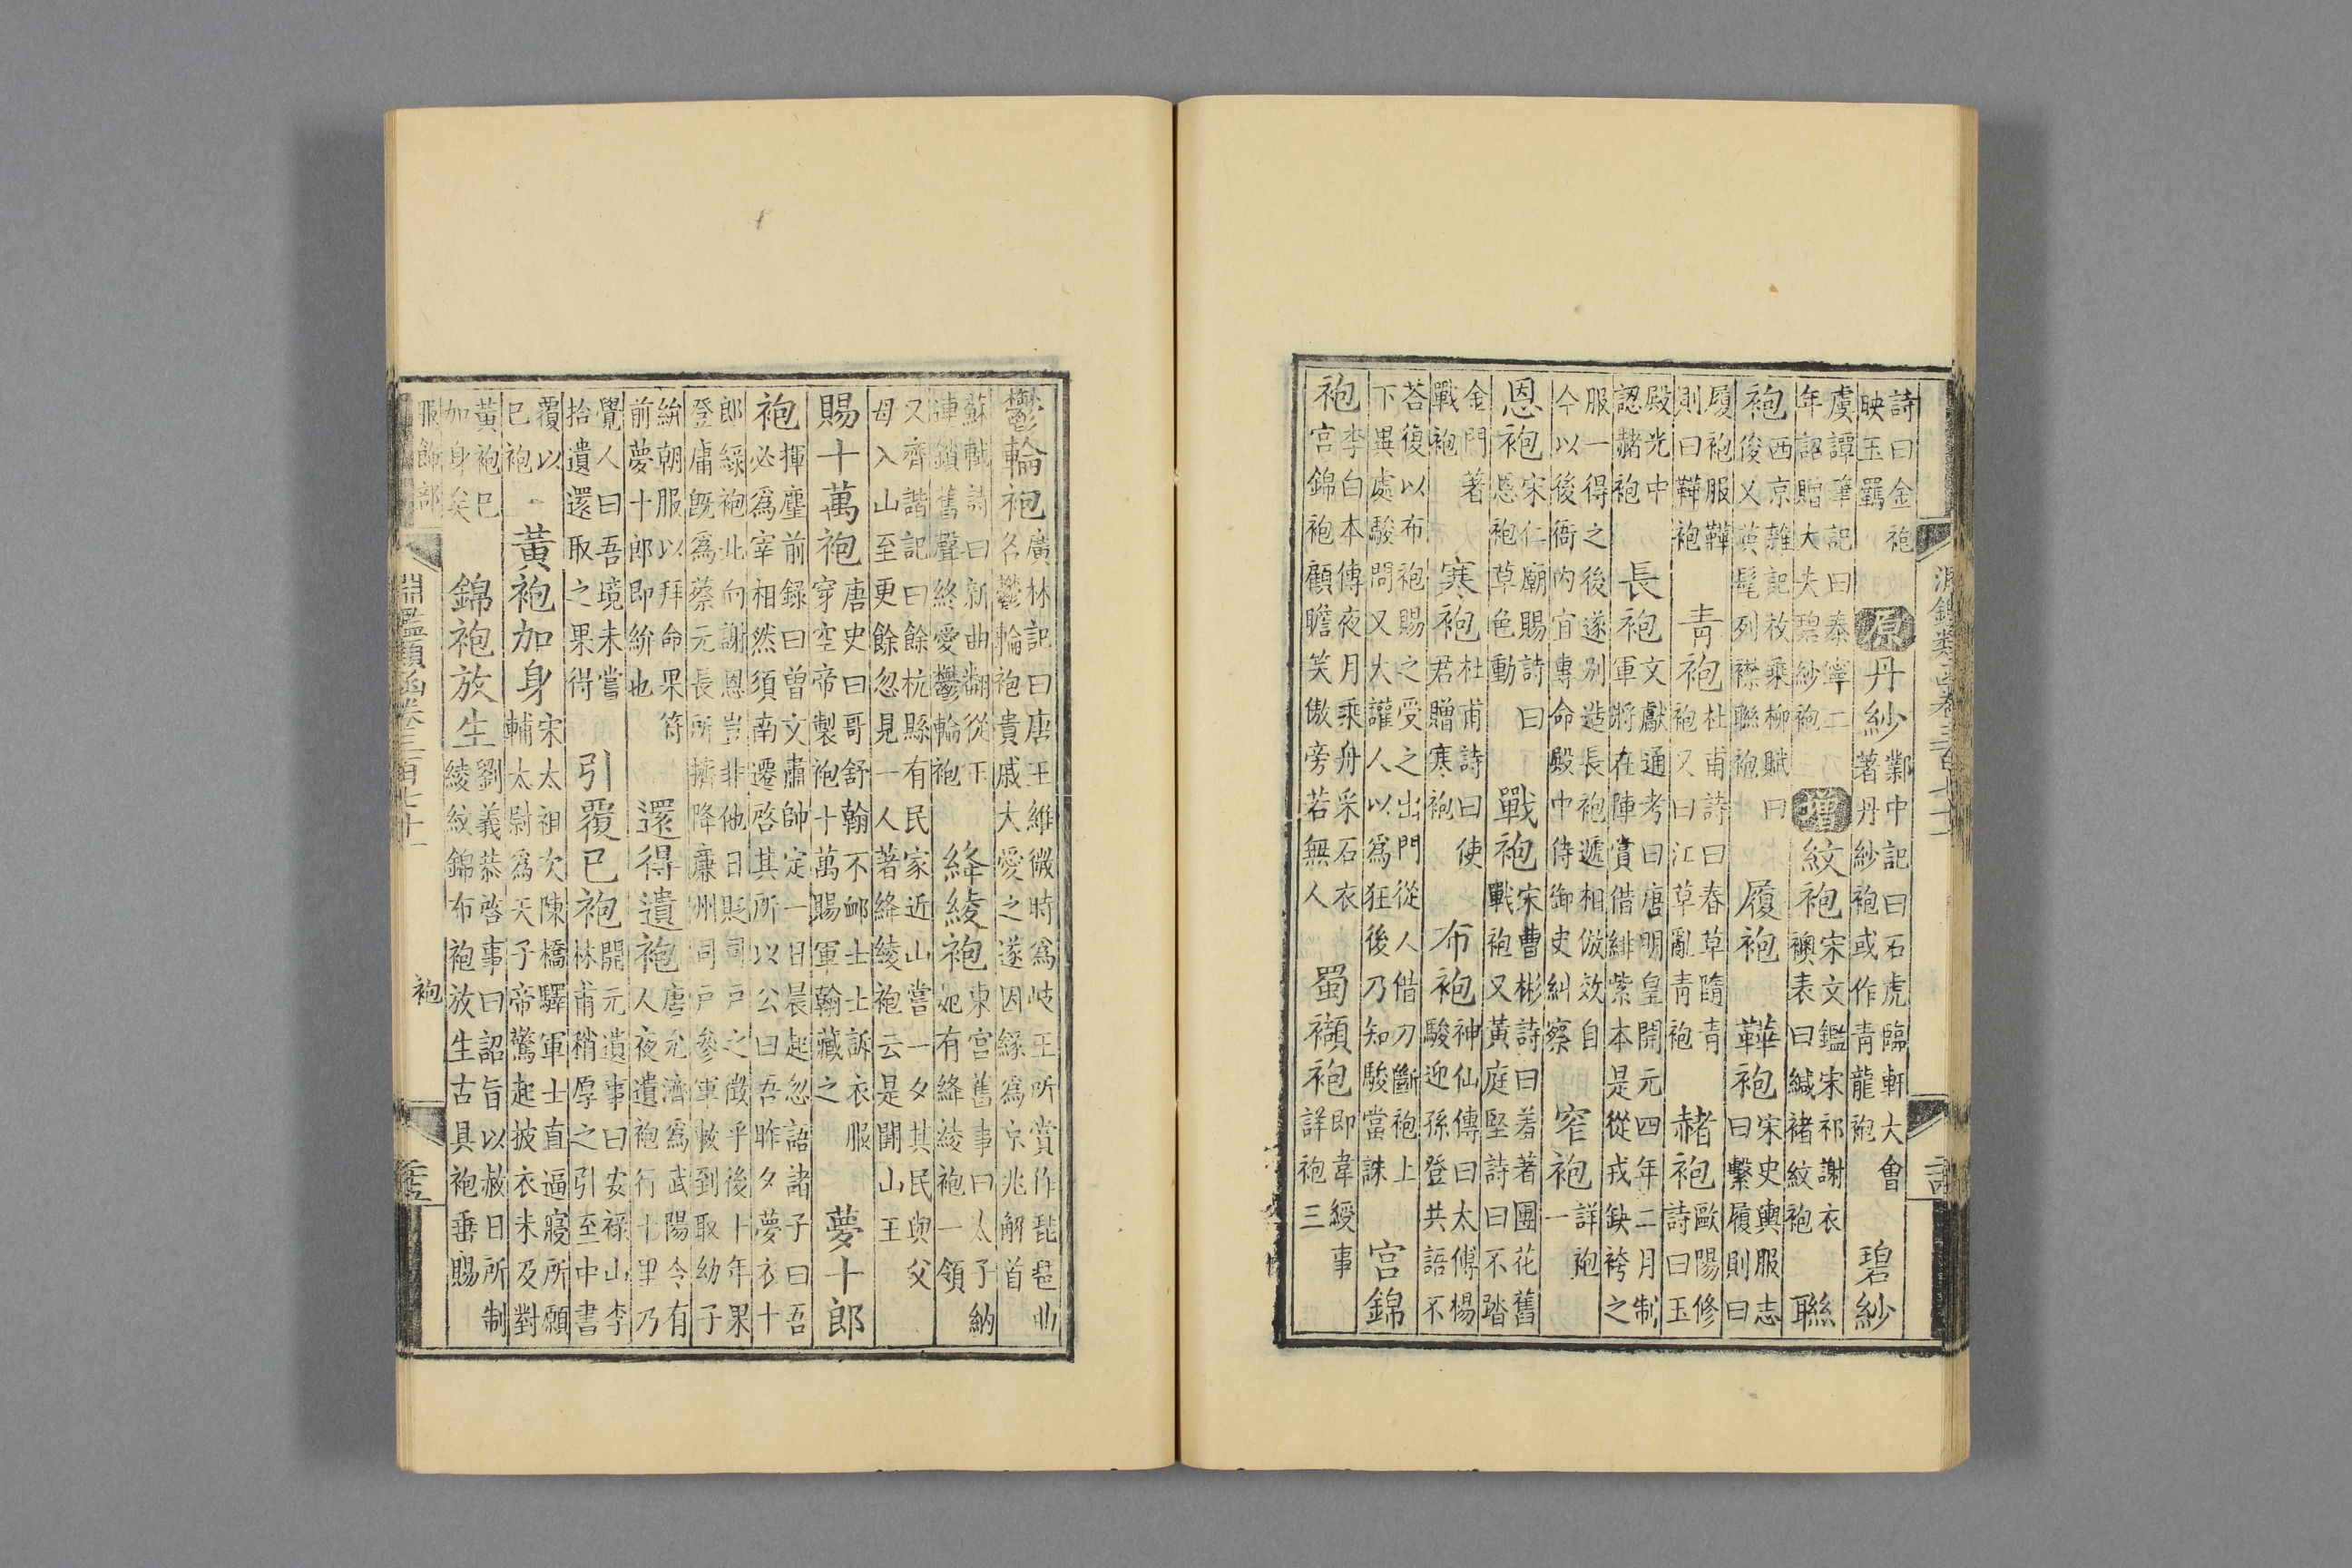 淵鑑類函卷三百七十一
詩曰金袍
映玉羈
原
丹紗
鄴中記曰石虎臨軒大會
著丹紗袍或作青龍袍
碧紗
虞譚筆記曰泰寧二
年詔贈大夫碧紗袍
增
紋袍
宋文鑑宋祁謝衣
襖表曰緘褚紋袍
聯
袍
西京雜記枚乘柳賦曰
俊乂英髦列襟聯袍
履袍
鞾袍
宋史輿服志
曰繫履則曰
履袍服鞾
則曰鞾袍
青袍
杜甫詩曰春草隋青
袍又曰江草亂青袍
赭袍
歐陽修
詩曰玉
殿光中
認赭袍
長袍
文獻通考曰唐明皇開元四年二月制
軍將在陣賞借緋紫本是從戎缺袴之
服一得之後遂別造長袍遞相倣效自
今以後衙內宜專命殿中侍御史糾察
窄袍
詳袍
一
恩袍
宋仁廟賜詩曰
恩袍草色動
戰袍
宋曹彬詩曰羞著團花舊
戰袍又黃庭堅詩曰不踏
金門著
戰袍
寒袍
杜甫詩曰使
君贈寒袍
布袍
神仙傳曰太傅楊
駿迎孫登共語不
荅復以布袍賜之受之出門從人借刀斷袍上
下異處駿問又大讙人以為狂後乃知駿當誅
宮錦
袍
李白本傳夜月乘舟采石衣
宮錦袍顧瞻笑傲旁若無人
蜀襭袍
即韋綬事
詳袍三
鬱輪袍
廣林記曰唐王維微時為岐王所賞作琵琶曲
名鬱輪袍貴戚大愛之遂因緣為京兆解首
蘇軾詩曰新曲翻從玉
連鎖舊聲終愛鬱輪袍
絳綾袍
東宮舊事曰太子納
妃有絳綾袍一領
又齊諧記曰餘杭縣有民家近山嘗一夕其民與父
母入山至更餘忽見一人著絳綾袍云是開山王
賜十萬袍
唐史曰哥舒翰不䘏士士訴衣服
穿空帝製袍十萬賜軍翰藏之
夢十郎
袍
揮塵前錄曰曾文肅帥定一日晨起忽語諸子曰吾
必為宰相然須南遷啓其所以公曰吾昨夕夢衣十
郎綠袍北向謝恩豈非他日貶司戶之徵乎後十年果
登庸旣為蔡元長所擠降廉州司戶參軍敕到取幼子
紛朝服以拜命果符
前夢十郎即紛也
還得遺袍
唐元濟為武陽令有
人夜遺袍行十里乃
覺人曰吾境未嘗
拾遺還取之果得
引覆已袍
開元遺事曰安祿山李
林甫稍厚之引至中書
覆以
已袍
黃袍加身
宋太祖次陳橋驛軍士直逼寢所願
輔太尉為天子帝驚起披衣未及對
黃袍巳
加身矣
錦袍放生
劉義恭啓事曰詔旨以赦日所制
綾紋錦布袍放生古具袍垂賜
服飾部
淵鑑類函卷三百七十一
袍